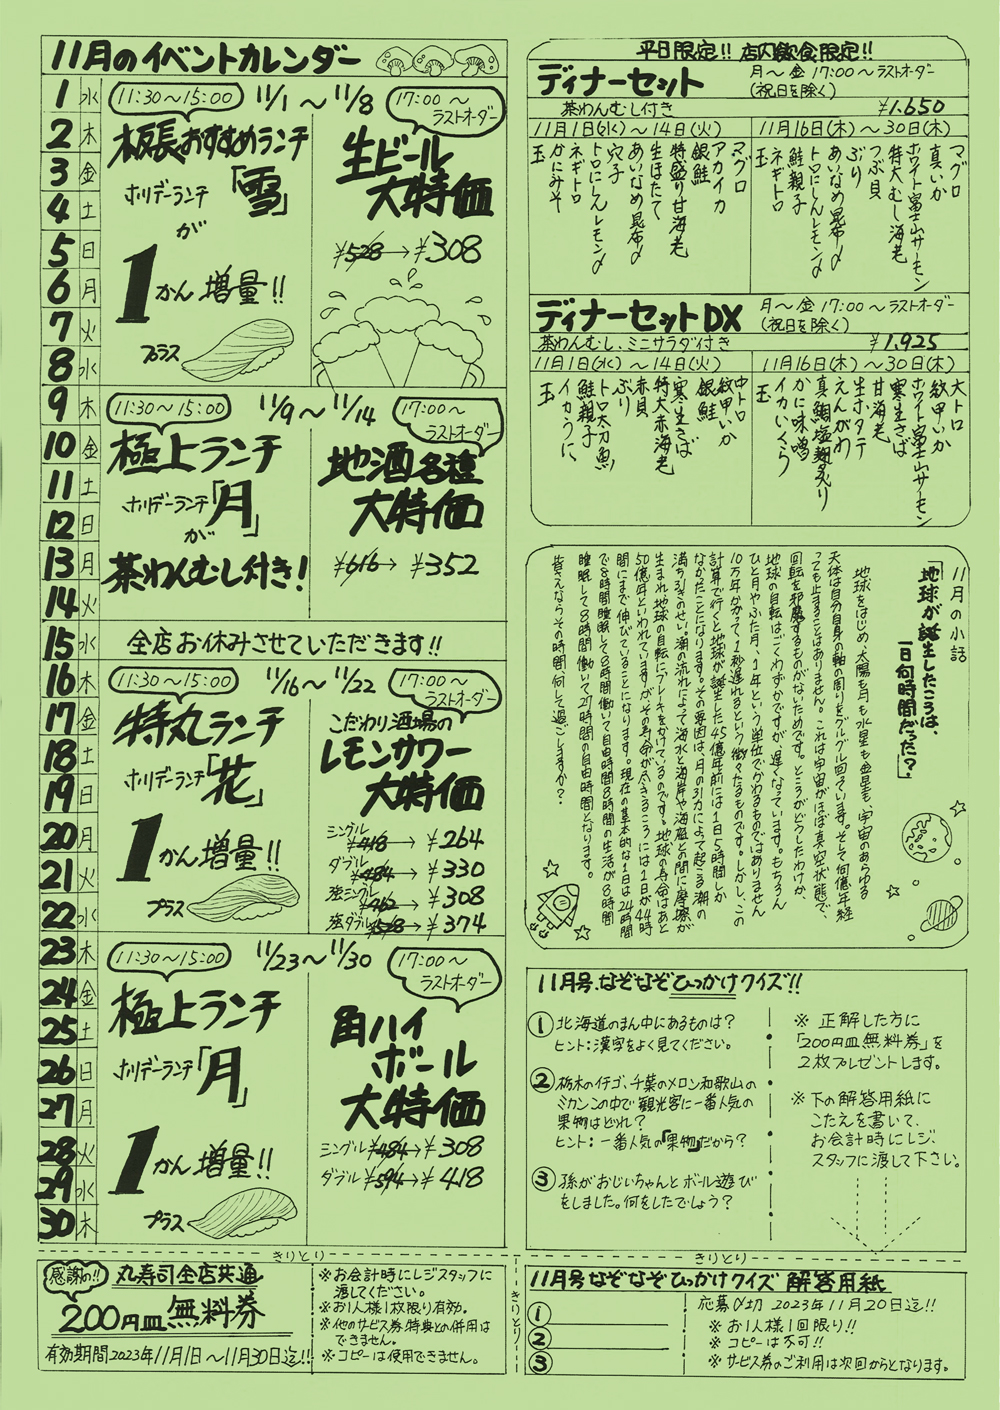 11月のイベントカレンダー
1 水
2 木
3 金
4 土
5 日
6 月
7 火
8 水
9 木
10 金
11 土
12 日
13 月
14 火
15 水
16 木
17 金
18 土
19 日
20 月
21 火
22 水
23 木
24 金
25 土
26 日
27 月
28 火
29 水
30 木
11:30〜15:00
11/1 〜 11/8
17:00〜
ラストオーダー
板長おすすめランチ
ホリデーランチ「雪」
が
1かん増量!!
プラス
生ビール
大特価
¥528→¥308
11:30〜15:00
11/9 〜 11/14
17:00〜
ラストオーダー
極上ランチ
ホリデーランチ「月」
が
茶わんむし付き!
地酒各種
大特価
¥616→¥352
全店お休みさせていただきます!!
11:30〜15:00
11/16〜 11/22
17:00〜
ラストオーダー
特丸ランチ
ホリデーランチ「花」
1かん増量!!
プラス
こだわり酒場の
レモンサワー
大特価
シングル ¥418→¥264
ダブル ¥484→¥330
強シングル ¥462→¥308
強ダブル ¥528→¥374
11:30〜15:00
11/23〜11/30
17:00〜
ラストオーダー
極上ランチ
ホリデーランチ「月」
1かん増量!!
プラス
角ハイ
ボール
大特価
シングル ¥484→¥308
ダブル ¥594→¥418
平日限定!! 店内飲食限定!!
ディナーセット
月〜金 17:00〜ラストオーダー
(祝日を除く)
茶わんむし付き
¥1.650
11月1日(水)〜14日(火)
マグロ
アカイカ
銀鮭
特盛り甘海老
生ほたて
あいなめ昆布〆
穴子
トロにしんレモン〆
ネギトロ
かにみそ
玉
11月16日(木)〜30日(木)
マグロ
真いか
ホワイト富士山サーモン
特大むし海老
つぶ貝
ぶり
あいなめ昆布〆
トロにしんレモン〆
鮭親子
ネギトロ
玉
ディナーセットDX
月〜金 17:00〜ラストオーダー
(祝日を除く)
茶わんむし、ミニサラダ付き
¥1.925
11月1日(水)〜14日(火)
中トロ
紋甲いか
銀鮭
寒生さば
特大赤海老
赤貝
トロ太刀魚
ぶり
鮭親子
イカうに
玉
11月16日(木)〜30日(木)
大トロ
紋甲いか
ホワイト富士山サーモン
寒生さば
甘海老
生ホタテ
えんがわ
真鯛塩麹炙り
かに味噌
イカいくら
玉
11月の小話
「地球が誕生したころは、
一日何時間だった?」
地球をはじめ、太陽も月も水星も金星も、宇宙のあらゆる
天体は自分自身の軸の周りをグルグル回っています。そして何億年経
っても止まることはありません。これは宇宙がほぼ真空状態で、
回転を邪魔するものがないためです。ところがどうしたわけか、
地球の自転はごくわずかですが、遅くなっています。もちろん
ひと月やふた月、1年という単位でかわるものではありません
10万年かかって1秒遅れるという微々たるものです。しかし、この
計算で行くと地球が誕生した45億年前には1日5時間しか
なかったことになります。その要因は、月の引力によって起こる潮の
満ち引きのせい。潮の流れによって海水と海岸や海底との間に摩擦が
生まれ地球の自転にブレーキをかけているのです。地球の寿命はあと
50億年といわれていますがその寿命が尽きるころには1日が44時
間にまで伸びていることになります。現在の基本的な1日は24時間
で8時間睡眠して8時間働いて自由時間8時間の生活が8時間
睡眠して8時間働いて27時間の自由時間となります。
皆さんならその時間何して過ごしますか?
11月号.なぞなぞひっかけクイズ!!
① 北海道のまん中にあるものは?
ヒント:漢字をよく見てください。
② 栃木のイチゴ、千葉のメロン和歌山の
ミカンこの中で観光客に一番人気の
果物はどれ?
ヒント:一番人気の『果物』だから?
③ 孫がおじいちゃんとボール遊び
をしました。何をしたでしょう?
※ 正解した方に
「200円皿無料券」を
2枚プレゼントします。
※ 下の解答用紙に
こたえを書いて、
お会計時にレジ、
スタッフに渡して下さい。
きりとり
きりとり
きりとり
感謝の!!
丸寿司全店共通
200円皿無料券
有効期間2023年11月1日〜11月30日迄!!
※お会計時にレジスタッフに
渡してください。
※お1人様1枚限り有効。
※他のサービス券.特典との併用は
できません。
※コピーは使用できません。
11月号なぞなぞひっかけクイズ 解答用紙
①
②
③
応募〆切 2023年11月20日迄!!
※お1人様1回限り!!
※コピーは不可!!
※サービス券のご利用は次回からとなります。